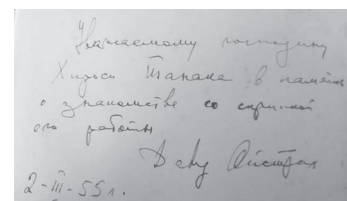 Уважаемому господину
Хироси Танака в память
о знакомстве со скрипкой
его работы
Давид Ойстрах
2-III-55 г.